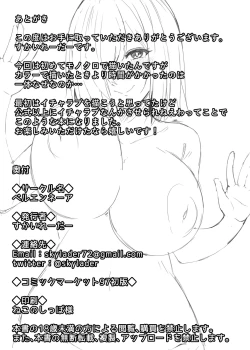 あとがき
この度はお手に取っていただきありがとうございます。
すかいれーだーです。
今回は初めてモノクロで描いたんですが
カラーで描いたときより時間がかかったのは
一体なぜなのか…
最初はイチャラブを描こうと思ってたけど
公式以上にイチャラブなんかさせられねえってことで
このような本になりました。
お楽しみいただけたなら嬉しいです!
奥付
◆サークル名◆
ベルエンネーア
◆発行者◆
すかいれーだー
◆連絡先◆
Email：skylader72@gmail.com
twitter：@skylader
◆コミックマーケット97初版◆
◆印刷◆
ねこのしっぽ様
本書の18歳未満の方による閲覧、購買を禁止します。
また、本書の無断転載、複製、アップロードを禁止します。